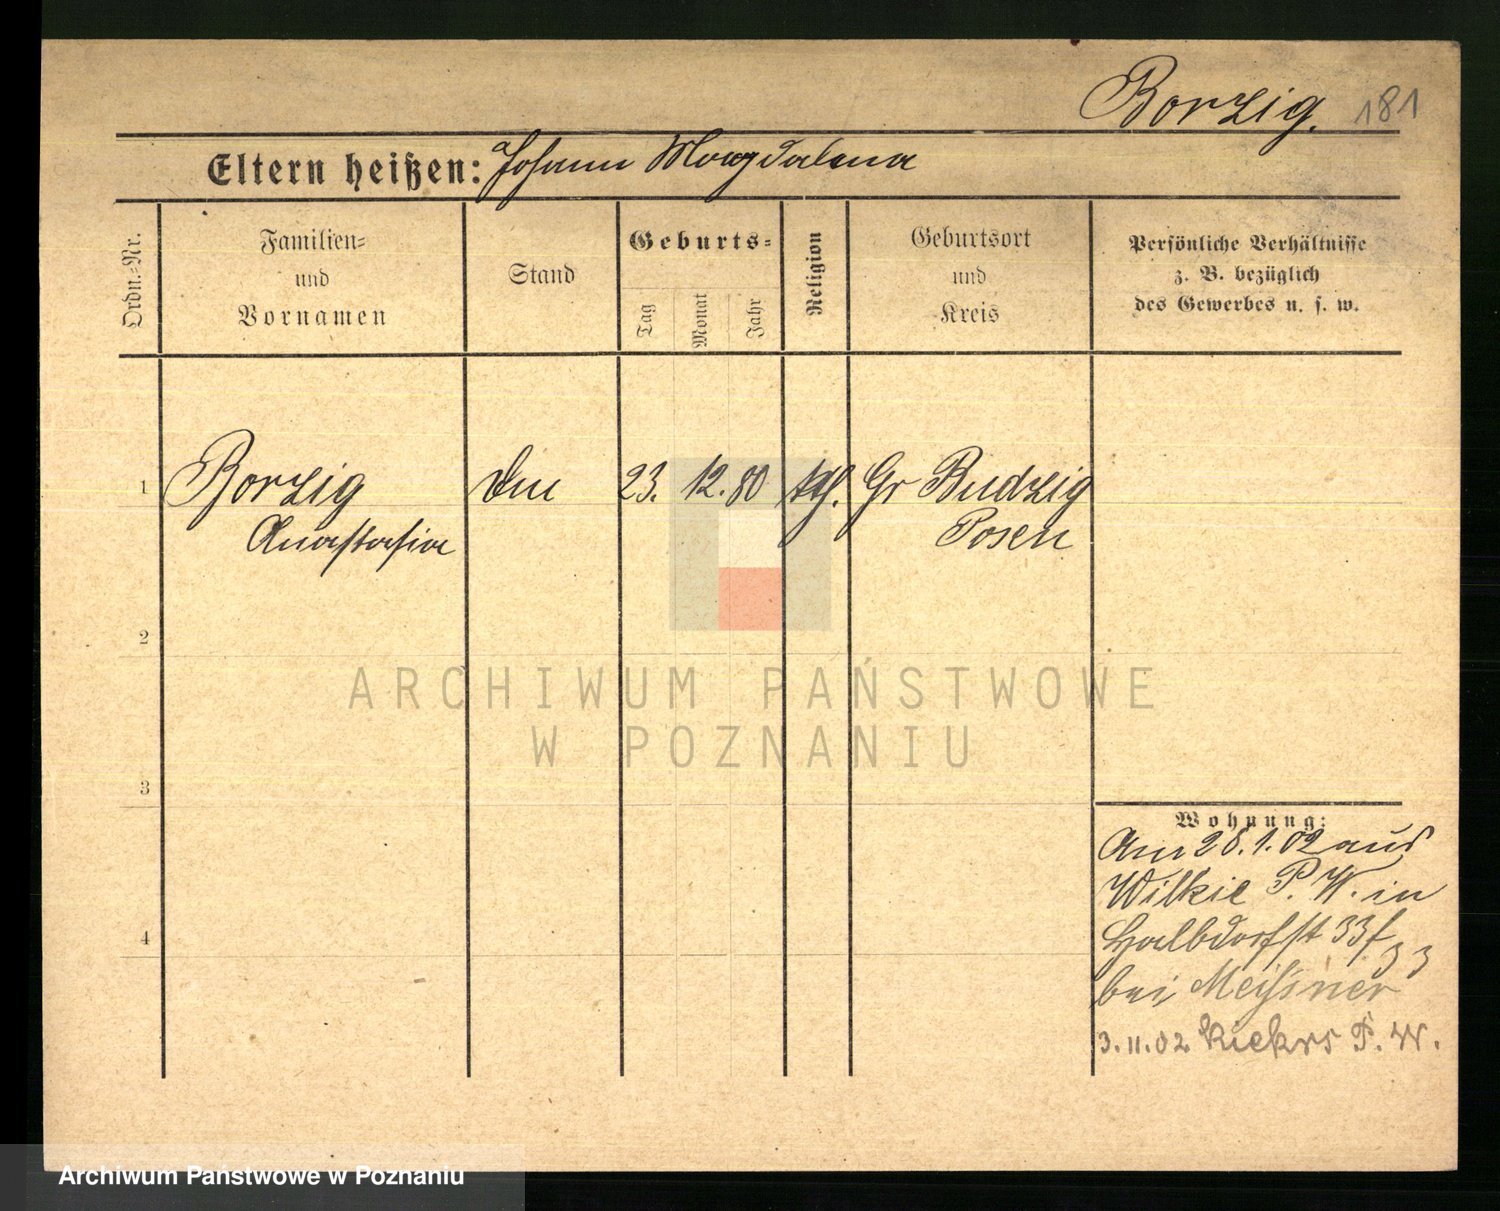 Borzig. 181
Eltern heißen: Johann Magdalena
Ordn.-Nr.
Familien-
und
Vornamen
Stand
Geburts-
Tag
Monat
Jahr
Religion
Geburtsort
und
Kreis
Persönliche Verhältnisse
z. B. bezüglich
des Gewerbes u. s. w.
1 Borzig 23. 12. 80 kth. Gr Budzig
Anastasia Posen
2
ARCHIWUM PAŃSTWOWE
W POZNANIU
3
Wohnung:
Am 28.1.02 aus
Wilkie P. W. in
4
Halbdorfst 33f
bei Meißner
3.11.02 Kiekrs P. W.
Archiwum Państwowe w Poznaniu